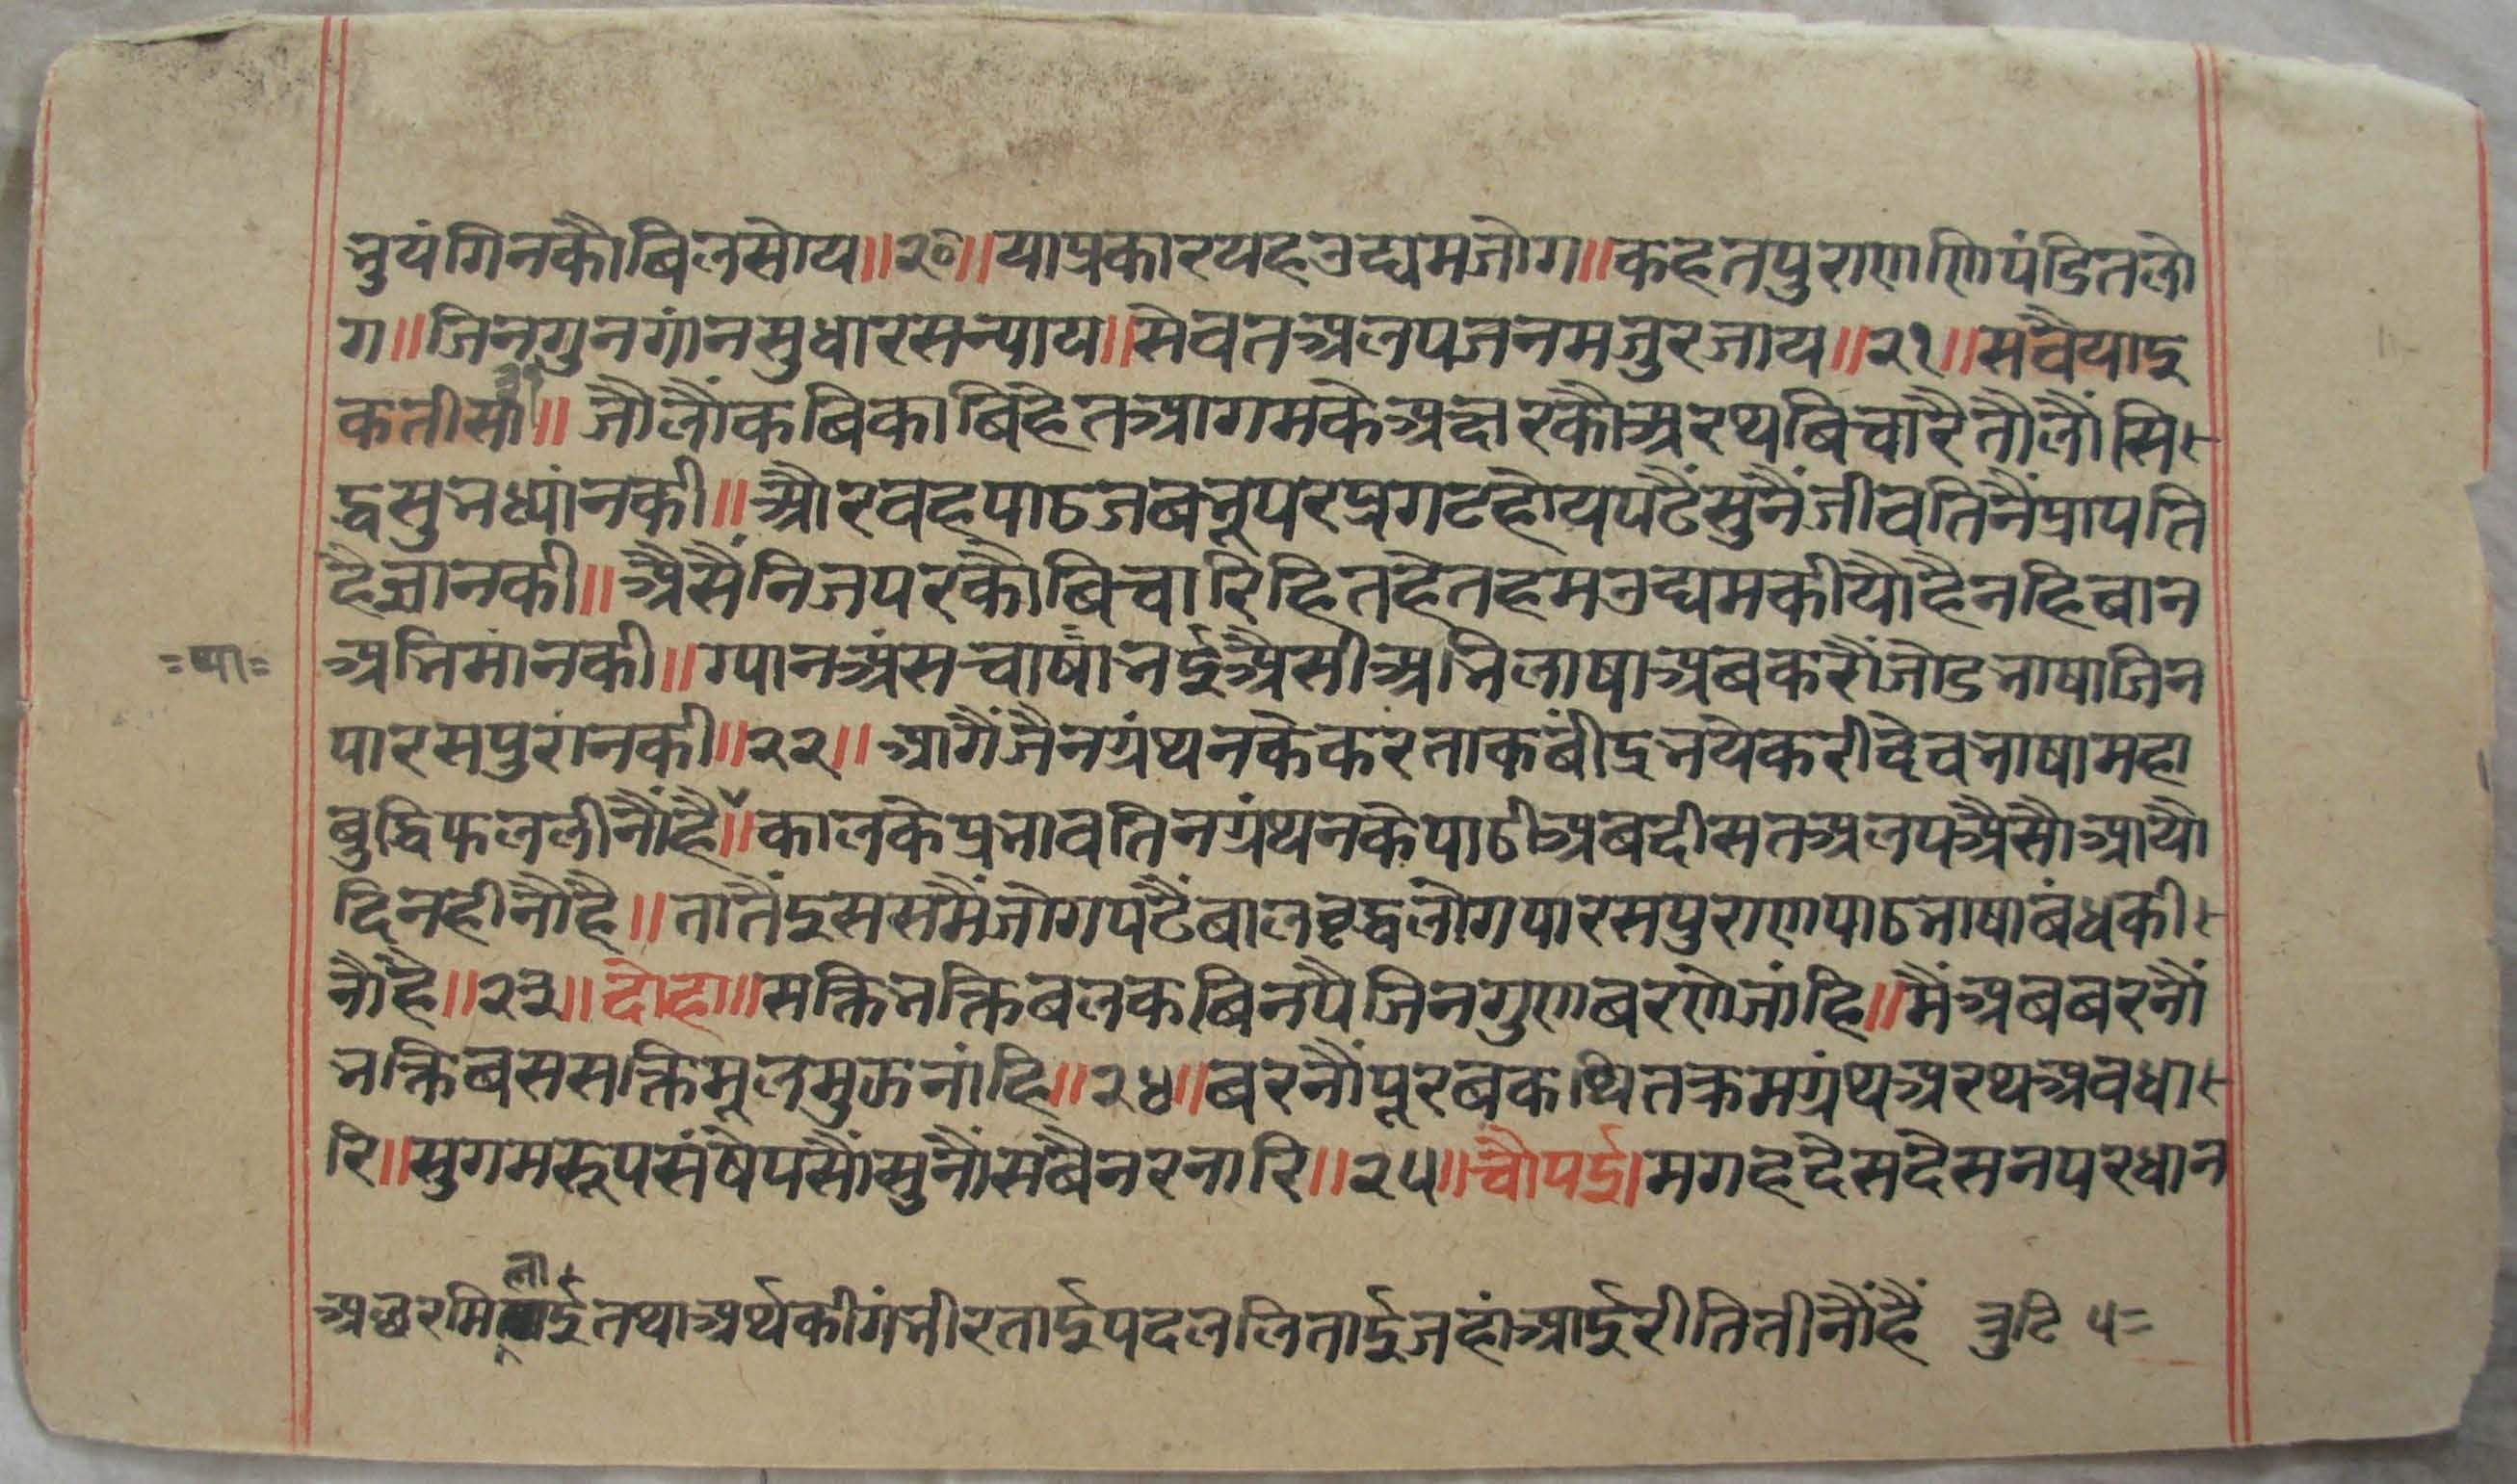 भुयंगिनकौबिलसोय॥२०॥याप्रकारयहउद्यमजोग॥कहतपुराणणिपंडितलो
ग॥जिनगुनगांनसुधारसन्याय॥सेवतअलपजनमजुरजाय॥२१॥सवैयाइ
कतीसा॥जौलौंकबिकाबिहेतआगमकेअछारकौअरथबिचारैतौलौंसि
द्धसुभध्यांनकी॥औरवहपाठजबभूपरप्रगटहोयपढैंसुनैंजीवतिनैंप्रापति
हैज्ञानकी॥अैसैंनिजपरकौबिचारिहितहेतहमउद्यमकीयौहैनहिबान
अभिमांनकी॥ग्यानअंसचाषाभईअैसीअभिलाषाअबकरौंजोडभाषाजिन
=या=
पारसपुरांनकी॥२२॥आगैंजैनग्रंथनकेकरताकबींद्रभयेकरीदेवभाषामहा
बुद्धिफललीनौंहै॥कालकेप्रभावतिनग्रंथनकेपाठीअबदीसतअलपअैसौआयौ
दिनहीनौहै॥तातैंइससमैंजोगपढैंबालबृद्धलोगपारसपुराणपाठभाषाबंधकी
नौंहै॥२३॥दोहा॥सक्तिभक्तिबलकबिनपैजिनगुणबरणेजांहि॥मैंअबबरनौं
भक्तिबससक्तिमूलमुऊनांहि॥२४॥बरनौंपूरबकथितक्रमग्रंथअरथअवधा
रि॥सुगमरूपसंषेपसौंसुनौंसबैनरनारि॥२५॥चौपई।मगहदेसदेसनपरधान
अछरमिलाईतथाअर्थकीगंभीरताईपदललिताईजहांआईरीतितीनौंहैं त्रुटि ५=